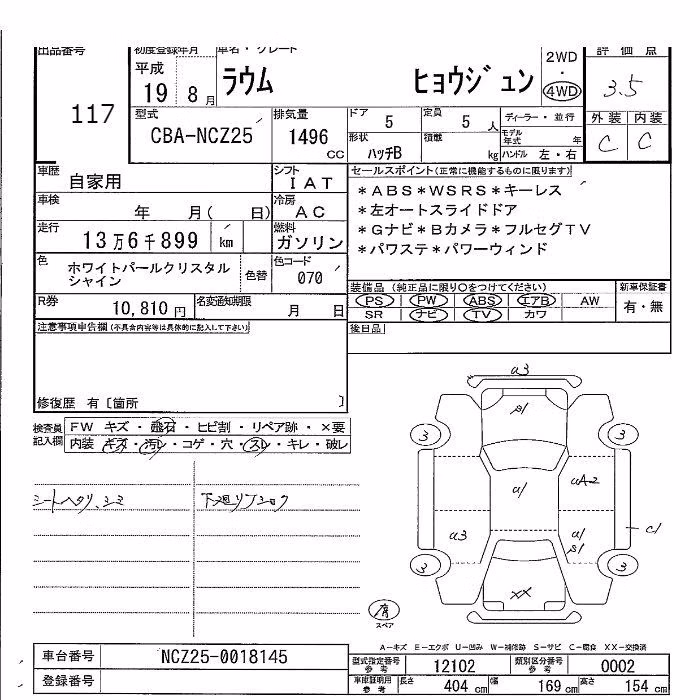 出品番号 初度登録年月 車名・グレード 2WD 評価点
平成 ラウム ヒョウジュン ・ 3.5
117 19 8月 4WD
型式 排気量 ドア 5 定員 5人 ディーラー・並行 外装 内装
CBA-NCZ25 1496 cc 形状 ハッチB 積載 kg モデル年式 年 C C
ハンドル 左・右
車歴 自家用 シフト IAT セールスポイント(正常に機能するものに限ります)
車検 年 月( 日) 冷房 AC *ABS*WSRS*キーレス
*左オートスライドドア
走行 13万6千899 km 燃料 ガソリン *Gナビ*Bカメラ*フルセグTV
*パワステ*パワーウィンド
色 ホワイトパールクリスタルシャイン 色替 色コード 070
装備品 (純正品に限り○をつけてください) 新車保証書
R券 10,810円 名変通知期限 月 日 PS PW ABS エアB AW 有・無
SR ナビ TV カワ
注意事項申告欄(不具合内容等は具体的に記入して下さい) 後日品
修復歴 有〔箇所 〕
検査員記入欄 FW キズ・飛石・ヒビ割・リペア跡・×要
内装 キズ・汚レ・コゲ・穴・スレ・キレ・破レ
シートヘタリ、シミ 下廻りフロク
a3
β1
3 3
a1 aA2
a3 a1 c1
β1
3 3
XX
有
スペア
A-キズ E-エクボ U-凹み W-補修跡 S-サビ C-腐食 XX-交換済
車台番号 NCZ25-0018145 型式指定番号 参考 12102 類別区分番号 参考 0002
登録番号 車庫証明用 参考 長さ 404 cm 幅 169 cm 高さ 154 cm